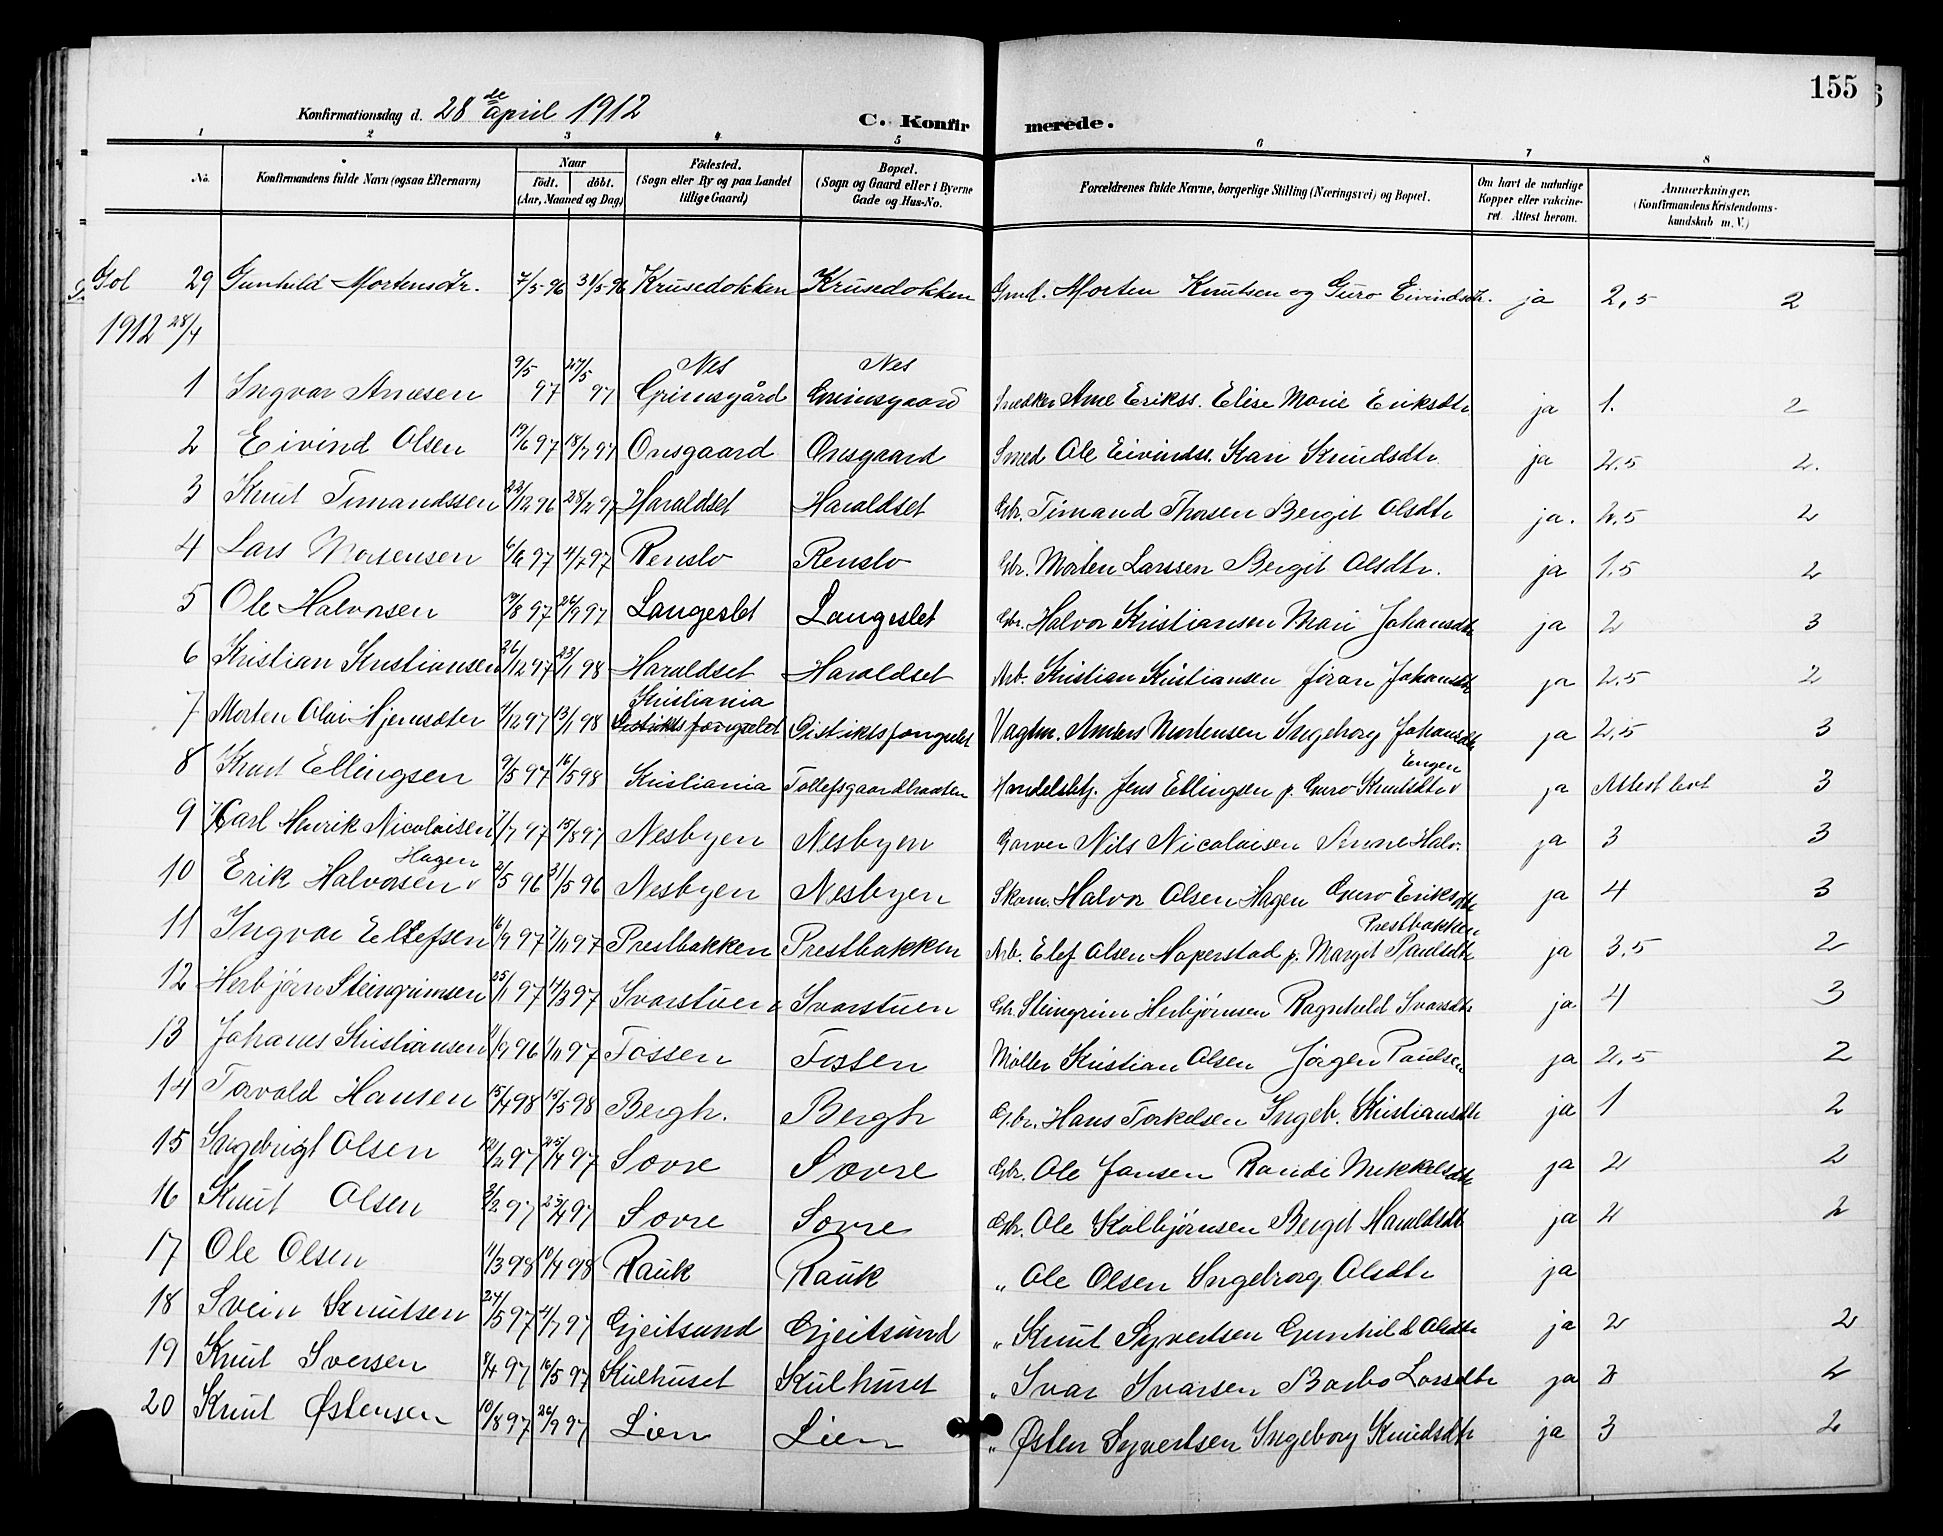 155
Konfirmationsdag d. 28de april 1912
C. Konfirmerede.
1 2 3 4 5 6 7 8
No. Konfirmandens fulde Navn (ogsaa Efternavn) Naar födt. döbt. (Aar, Maaned og Dag) Födested. (Sogn eller By og paa Landet tillige Gaard) Bopæl. (Sogn og Gaard eller i Byerne Gade og Hus-No. Forældrenes fulde Navne, borgerlige Stilling (Næringsvei) og Bopæl. Om havt de naturlige Kopper eller vakcineret. Attest herom. Anmærkninger. (Konfirmandens Kristendomskundskab m. V.)
Gol 29 Gunhild Mortensdtr. 7/5-96 31/5-96 Krusedokken Krusedokken Gmd. Morten Knutsen og Guro Eivindsdtr. ja 2,5 2
1912 28/4
1 Ingvar Arnesen 9/5 97 27/5 97 Nes Grimsgård Nes Grimsgaard Snedker Arne Erikss. Elise Marie Eriksdtr ja 1. 2
2 Eivind Olsen 19/6 97 18/7 97 Onsgaard Onsgaard Smed Ole Eivindss. Kari Knudsdtr ja 2,5 2.
3 Knut Timandssen 22/12 96 28/2 97 Haraldset Haraldset Gbr. Timand Thorsen Bergit Olsdtr ja. 2,5 2
4 Lars Mortensen 97 4/7 97 Renslo Renslo Gbr. Morten Larssen Bergit Olsdtr. ja 1,5 2
5 Ole Halvorsen 19/8 97 26/9 97 Langeslet Langeslet Gbr. Halvor Kristiansen Mari Johansdtr ja 2 3
6 Kristian Kristiansen 26/12 97 23/1 98 Haraldset Haraldset Arb. Kristian Kristiansen Jøran Johansdtr ja 2,5 2
7 Morten Olai Hjemsæter 4/12 97 13/1 98 Kristiania Distriktsfængslet Distriktsfængslet Vagtm. Anders Mortensen Ingeborg Johansdtr ja 2,5 3
8 Knut Ellingsen 9/5 97 16/5 98 Kristiania Tollefsgaardbraaten Handelsbtj. Jens Ellingsen p. Guro Knutsdtr Engen ja Attest bort 3
9 Karl Henrik Nicolaisen 7/7 97 15/8 97 Nesbyen Nesbyen Garver Nils Nicolaisen Anne Halv. ja 3 3
10 Erik Halvorsen Hagen 2/5 96 31/5 96 Nesbyen Nesbyen Skom. Halvor Olsen Hagen Guro Eriksdtr ja 4 3
11 Ingvar Ellefsen 16/9 97 7/11 97 Prestbakken Prestbakken Arb. Elef Olsen Haperstad p. Margit Paulsdtr Prestbakken ja 3,5 2
12 Herbjørn Steingrimsen 25/1 97 4/3 97 Ivarstuen Ivarstuen Gbr. Steingrim Herbjørnsen Ragnhild Ivarsdtr ja 4 3
13 Johanes Kristiansen 96 1/11 97 Fossen Fossen Møller Kristian Olsen Jørgen Paulsen ja 2,5 2
14 Torvald Hansen 15/4 98 15/5 98 Bergh. Bergh Gbr. Hans Torkelsen Ingeb. Kristiansdtr ja 1 2
15 Ingebrigt Olsen 12/2 97 25/4 97 Sovre Sovre Gbr. Ole Jansen Randi Mikkelsdtr ja 2 2
16 Knut Olsen 3/2 97 25/4 97 Sovre Sovre Gbr. Ole Kolbjørnsen Berget Haraldsdt ja 2 2
17 Ole Olsen 11/3 98 10/4 98 Rauk Rauk „ Ole Olsen Ingeborg Olsdtr ja
18 Svein Knutsen 24/5 97 4/7 97 Gjeitsund Gjeitsund „ Knut Syvertsen Gunhild Olsdtr ja 2 2
19 Knut Iversen 8/4 97 16/5 97 Kulhuset Kulhuset „ Ivar Ivarsen Barbo Larsdtr ja 2 2
20 Knut Østensen 10/8 97 26/9 97 Lien Lien „ Østen Syvertsen Ingeborg Knudsdtr ja 3 2